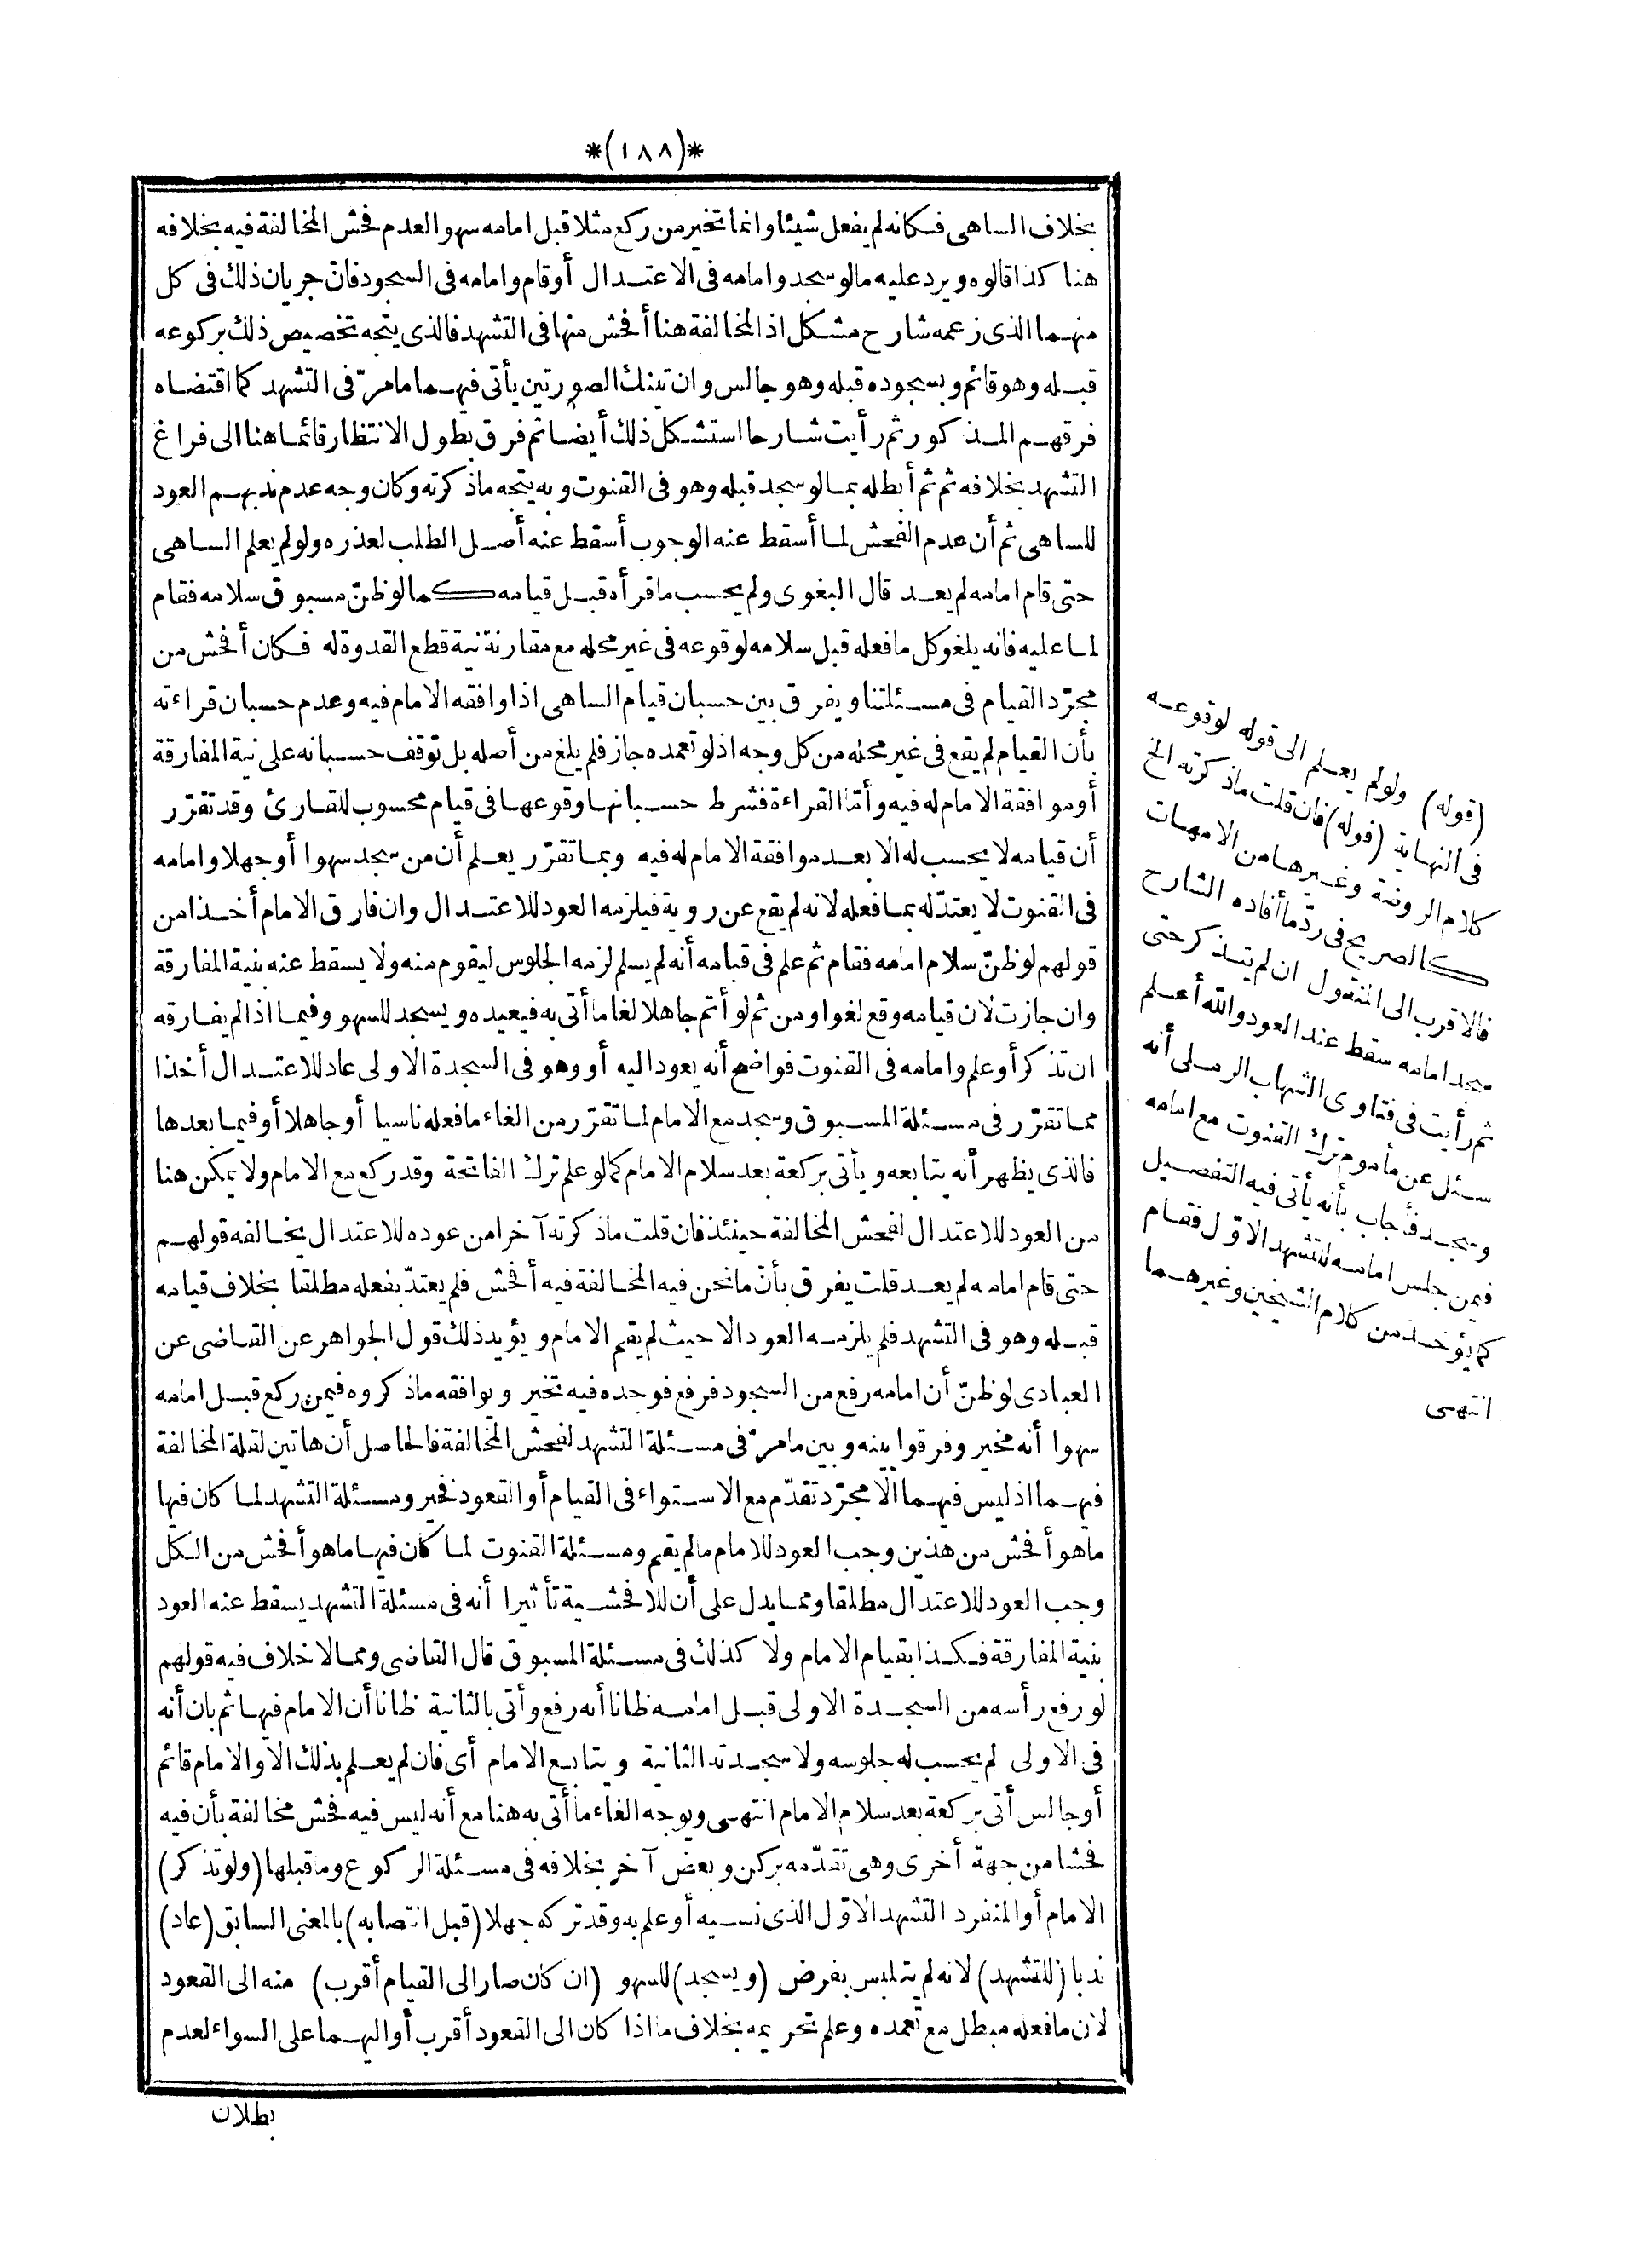 *(١٨٨)*
بخلاف الساهى فكانه لم يفعل شيئا وانما تخير من ركع مثلا قبل امامه سهوا لعدم فحش المخالفة فيه بخلافه
هنا كذا قالوه ويرد عليه مالو سجد وامامه فى الاعتدال أوقام وامامه فى السجود فانّ جريان ذلك فى كل
منهما الذى زعمه شارح مشكل اذ المخالفة هنا أفحش منها فى التشهد فالذى يتجه تخصيص ذلك بركوعه
قبله وهو قائم وبسجوده قبله وهو جالس وان تينك الصورتين يأتى فيهما مامرّ فى التشهد كما اقتضاه
فرقهم المذكور ثم رأيت شارحا استشكل ذلك أيضا ثم فرق بطول الانتظار قائما هنا الى فراغ
التشهد بخلافه ثم ثم أبطله بمالو سجد قبله وهو فى القنوت وبه يتجه ماذكرته وكان وجه عدم ندبهم العود
للساهى ثم أن عدم الفحش لما أسقط عنه الوجوب أسقط عنه أصل الطلب لعذره ولولم يعلم الساهى
حتى قام امامه لم يعد قال البغوى ولم يحسب ماقرأه قبل قيامه كمالوظنّ مسبوق سلامه فقام
لما عليه فانه يلغو كل مافعله قبل سلامه لوقوعه فى غير محله مع مقارنة نية قطع القدوة له فكان أفحش من
مجرّد القيام فى مسئلتنا ويفرق بين حسبان قيام الساهى اذا وافقه الامام فيه وعدم حسبان قراءته
بأن القيام لم يقع فى غير محله من كل وجه اذ لو تعمده جاز فلم يلغ من أصله بل توقف حسبانه على نية المفارقة
أوموافقة الامام له فيه وأمّا القراءة فشرط حسبانها وقوعها فى قيام محسوب للقارئ وقد تقرّر
أن قيامه لا يحسب له الا بعد موافقة الامام له فيه وبما تقرّر يعلم أن من سجد سهوا أوجهلا وامامه
فى القنوت لا يعتدّ له بما فعله لانه لم يقع عن روية فيلزمه العود للاعتدال وان فارق الامام أخذا من
قولهم لوظنّ سلام امامه فقام ثم علم فى قيامه أنه لم يسلم لزمه الجلوس ليقوم منه ولا يسقط عنه بنية المفارقة
وان جازت لان قيامه وقع لغوا ومن ثم لو أتم جاهلا لغا ما أتى به فيعيده ويسجد للسهو وفيما اذا لم يفارقه
ان تذكر أوعلم وامامه فى القنوت فواضح أنه يعود اليه أووهو فى السجدة الاولى عاد للاعتدال أخذا
مما تقرّر فى مسئلة المسبوق وسجد مع الامام لما تقرّر من الغاء مافعله ناسيا أوجاهلا أوفيما بعدها
فالذى يظهر أنه يتابعه ويأتى بركعة بعد سلام الامام كما لوعلم ترك الفاتحة وقد ركع مع الامام ولا يمكن هنا
من العود للاعتدال لفحش المخالفة حينئذ فان قلت ماذكرته آخرا من عوده للاعتدال يخالفه قولهم
حتى قام امامه لم يعد قلت يفرق بأنّ مانحن فيه المخالفة فيه أفحش فلم يعتدّ بفعله مطلقا بخلاف قيامه
قبله وهو فى التشهد فلم يلزمه العود الا حيث لم يقم الامام ويؤيد ذلك قول الجواهر عن القاضى عن
العبادى لوظنّ أن امامه رفع من السجود فرفع فوجده فيه تخير ويوافقه ماذكروه فيمن ركع قبل امامه
سهوا أنه مخير وفرقوا بينه وبين مامرّ فى مسئلة التشهد لفحش المخالفة فالحاصل أن هاتين لقلة المخالفة
فيهما اذ ليس فيهما الا مجرّد تقدّم مع الاستواء فى القيام أوالقعود فخير ومسئلة التشهد لما كان فيها
ماهو أفحش من هذين وجب العود للامام مالم يقم ومسئلة القنوت لما كان فيها ماهو أفحش من الكل
وجب العود للاعتدال مطلقا ومما يدل على أن للافحشية تأثيرا أنه فى مسئلة التشهد يسقط عنه العود
بنية المفارقة فكذا بقيام الامام ولا كذلك فى مسئلة المسبوق قال القاضى ومما لاخلاف فيه قولهم
لورفع رأسه من السجدة الاولى قبل امامه ظانا أنه رفع وأتى بالثانية ظانا أن الامام فيها ثم بان أنه
فى الاولى لم يحسب له جلوسه ولا سجدته الثانية ويتابع الامام أى فان لم يعلم بذلك الا والامام قائم
أوجالس أتى بركعة بعد سلام الامام انتهى ويوجه الغاء ما أتى به هنا مع أنه ليس فيه فحش مخالفة بأن فيه
فحشا من جهة أخرى وهى تقدّمه بركن وبعض آخر بخلافه فى مسئلة الركوع وماقبلها (ولوتذكر)
الامام أوالمنفرد التشهد الاوّل الذى نسيه أوعلم به وقد تركه جهلا (قبل انتصابه) بالمعنى السابق (عاد)
ندبا (للتشهد) لانه لم يتلبس بفرض (ويسجد) للسهو (ان كان صار الى القيام أقرب) منه الى القعود
لان مافعله مبطل مع تعمده وعلم تحريمه بخلاف مااذا كان الى القعود أقرب أواليهما على السواء لعدم
بطلان
(قوله) ولولم يعلم الى قوله لوقوعه
فى النهاية (قوله) فان قلت ماذكرته الخ
كلام الروضة وغيرها من الامهات
كالصريح فى ردّ ما أفاده الشارح
فالاقرب الى المنقول ان لم يتذكر حتى
سجد امامه سقط عند العود والله أعلم
ثم رأيت فى فتاوى الشهاب الرملى أنه
سئل عن مأموم ترك القنوت مع امامه
وسجد فأجاب بأنه يأتى فيه التفصيل
فيمن جلس امامه للتشهد الاوّل فقام
كما يؤخذ من كلام الشيخين وغيرهما
انتهى